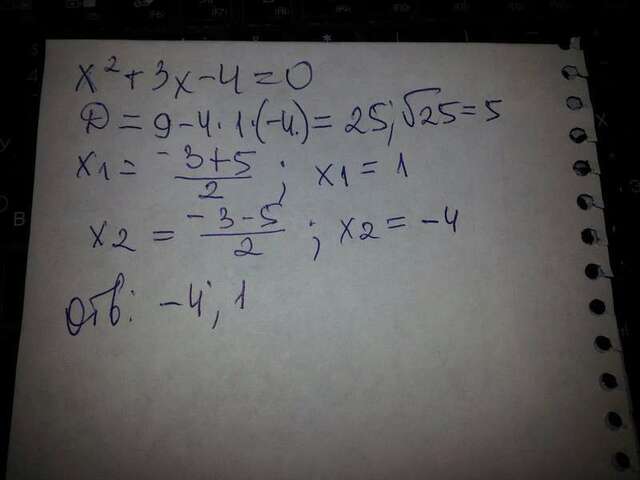 x² + 3x - 4 = 0
D = 9 - 4 · 1 · (-4) = 25; √25 = 5
x1 = (-3+5)/2 ; x1 = 1
x2 = (-3-5)/2 ; x2 = -4
Отв: -4; 1